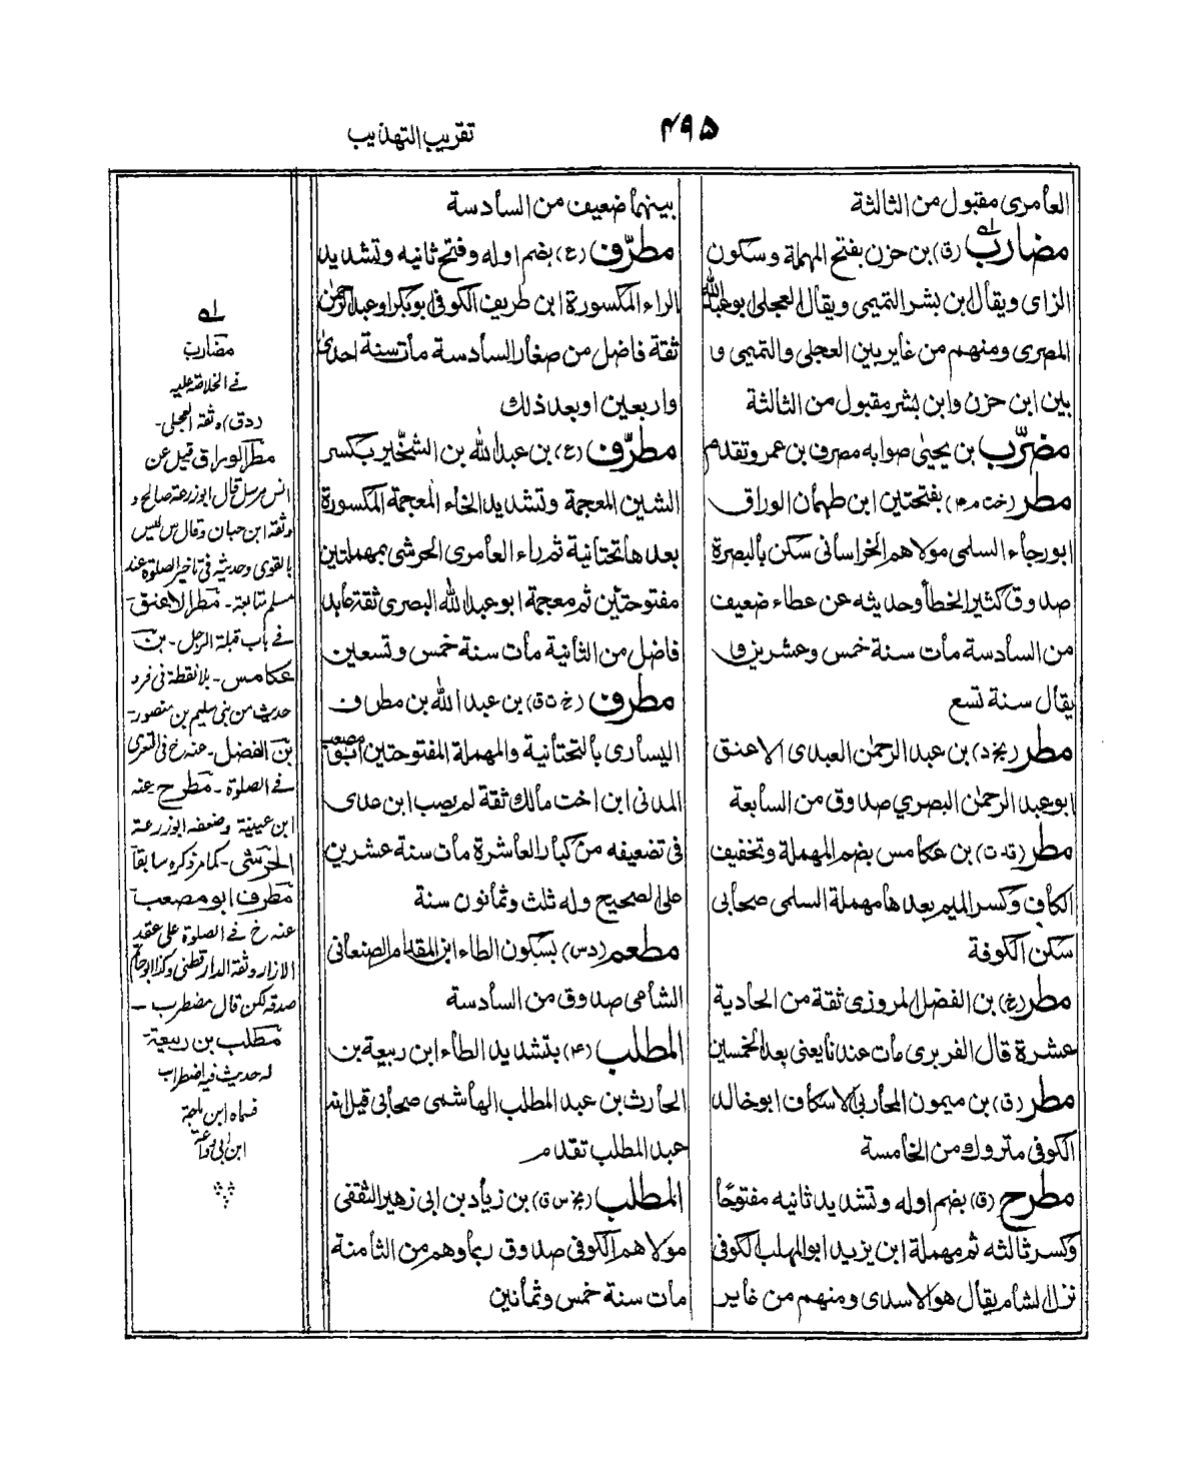 ۴۹۵
تقريب التهذيب
العامرى مقبول من الثالثة
مضارب (ق) بن حزن بفتح المهملة وسكون
الزاى ويقال ابن بشر التميمى ويقال العجلى ابو عبدالله
المصرى ومنهم من غاير بين العجلى والتميمى و
بين ابن حزن وابن بشر مقبول من الثالثة
مضرّب بن يحيىٰ صوابه مصرف بن عمرو تقدم
مطر (خت م ۴) بفتحتين ابن طهمان الوراق
ابو رجاء السلمى مولاهم الخراسانى سكن بالبصرة
صدوق كثير الخطأ وحديثه عن عطاء ضعيف
من السادسة مات سنة خمس وعشرين و
يقال سنة تسع
مطر (بخ د) بن عبد الرحمٰن العبدى الاعنق
ابو عبد الرحمٰن البصري صدوق من السابعة
مطر (قد ت) بن عكامس بضم المهملة وتخفيف
الكاف وكسر الميم بعدها مهملة السلمى صحابى
سكن الكوفة
مطر (خ) بن الفضل المروزى ثقة من الحادية
عشرة قال الفربرى مات عندنا يعنى بعد الخمسين
مطر (ق) بن ميمون المحاربى الاسكاف ابو خالد
الكوفى متروك من الخامسة
مطرح (ق) بضم اوله وتشديد ثانيه مفتوحًا
وكسر ثالثه ثم مهملة ابن يزيد ابو المهلب الكوفى
نزل الشام يقال هو الاسدى ومنهم من غاير
بينهما ضعيف من السادسة
مطرّف (ع) بضم اوله وفتح ثانيه وتشديد
الراء المكسورة ابن طريف الكوفى ابو بكر او عبد الرحمٰن
ثقة فاضل من صغار السادسة مات سنة احدىٰ
واربعين او بعد ذلك
مطرّف (ع) بن عبد الله بن الشخّير بكسر
الشين المعجمة وتشديد الخاء المعجمة المكسورة
بعدها تحتانية ثم راء العامرى الحرشى بمهملتين
مفتوحتين ثم معجمة ابو عبد الله البصرى ثقة عابد
فاضل من الثانية مات سنة خمس وتسعين
مطرف (خ ت ق) بن عبد الله بن مطرف
اليسارى بالتحتانية والمهملة المفتوحتين ابو مصعب
المدنى ابن اخت مالك ثقة لم يصب ابن عدى
فى تضعيفه من كبار العاشرة مات سنة عشرين
على الصحيح وله ثلث وثمانون سنة
مطعم (د س) بسكون الطاء ابن المقدام الصنعانى
الشامى صدوق من السادسة
المطلب (م ۴) بتشديد الطاء ابن ربيعة بن
الحارث بن عبد المطلب الهاشمى صحابى قيل انه
عبد المطلب تقدم
المطلب (بخ س ق) بن زياد بن ابى زهير الثقفى
مولاهم الكوفى صدوق ربما وهم من الثامنة
مات سنة خمس وثمانين
لـه
مضارب
فى الخلاصة عليه
(د ق) وثقه العجلى-
مطر الوراق قيل عن
انس مرسل قال ابو زرعة صالح و
وثقه ابن حبان وقال س ليس
بالقوى وحديثه فى تاخير الصلوة عند
مسلم متابعة - مطر الاعنق-
فى باب قبلة الرجل - بن
عكامس - بلا نقطة فى فرد
حديث من بنى سليم بن منصور-
بن الفضل - عنه خ فى التعرى
فى الصلوة - مطرح عنه
ابن عيينة وضعفه ابو زرعة
الحرشى - كما مر ذكره سابقا
مطرف ابو مصعب
عنه خ فى الصلوة على عقد
الازار وثقه الدارقطنى وكذا ابو حاتم
صدقه لكن قال مضطرب -
مطلب بن ربيعة-
له حديث فيه اضطراب
فسماه ابن ماجة
ابن ابى وداعة